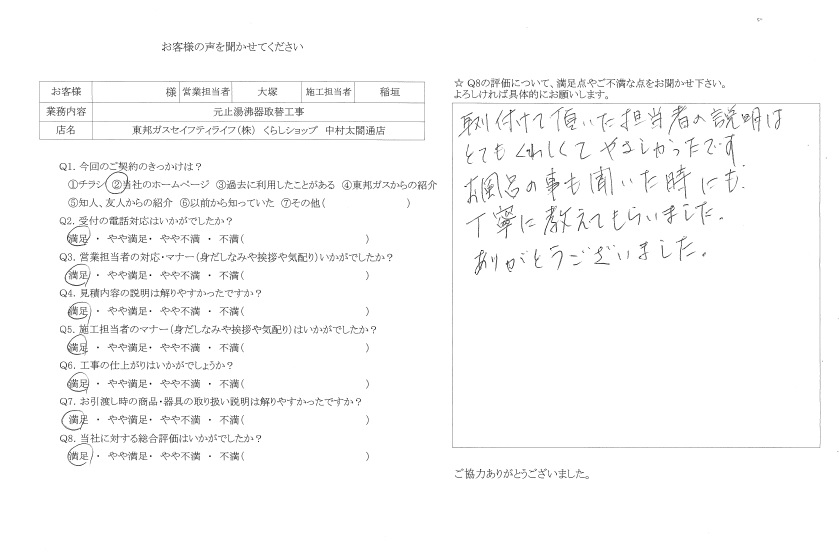 お客様の声を聞かせてください
お客様 様 営業担当者 大塚 施工担当者 稲垣
業務内容 元止湯沸器取替工事
店名 東邦ガスセイフティライフ(株) くらしショップ 中村太閤通店
Q1. 今回のご契約のきっかけは?
①チラシ ②当社のホームページ ③過去に利用したことがある ④東邦ガスからの紹介
⑤知人、友人からの紹介 ⑥以前から知っていた ⑦その他( )
Q2. 受付の電話対応はいかがでしたか?
満足 ・ やや満足・ やや不満 ・ 不満( )
Q3. 営業担当者の対応・マナー(身だしなみや挨拶や気配り)いかがでしたか?
満足 ・ やや満足・ やや不満 ・ 不満( )
Q4. 見積内容の説明は解りやすかったですか?
満足 ・ やや満足・ やや不満 ・ 不満( )
Q5. 施工担当者のマナー(身だしなみや挨拶や気配り)はいかがでしたか?
満足 ・ やや満足・ やや不満 ・ 不満( )
Q6. 工事の仕上がりはいかがでしょうか?
満足 ・ やや満足・ やや不満 ・ 不満( )
Q7. お引渡し時の商品・器具の取り扱い説明は解りやすかったですか?
満足 ・ やや満足・ やや不満 ・ 不満( )
Q8. 当社に対する総合評価はいかがでしたか?
満足 ・ やや満足・ やや不満 ・ 不満( )
☆ Q8の評価について、満足点やご不満な点をお聞かせ下さい。
よろしければ具体的にお願いします。
取り付けて頂いた担当者の説明は
とてもくわしくてやさしかったです。
お風呂の事も聞いた時にも、
丁寧に教えてもらいました。
ありがとうございました。
ご協力ありがとうございました。